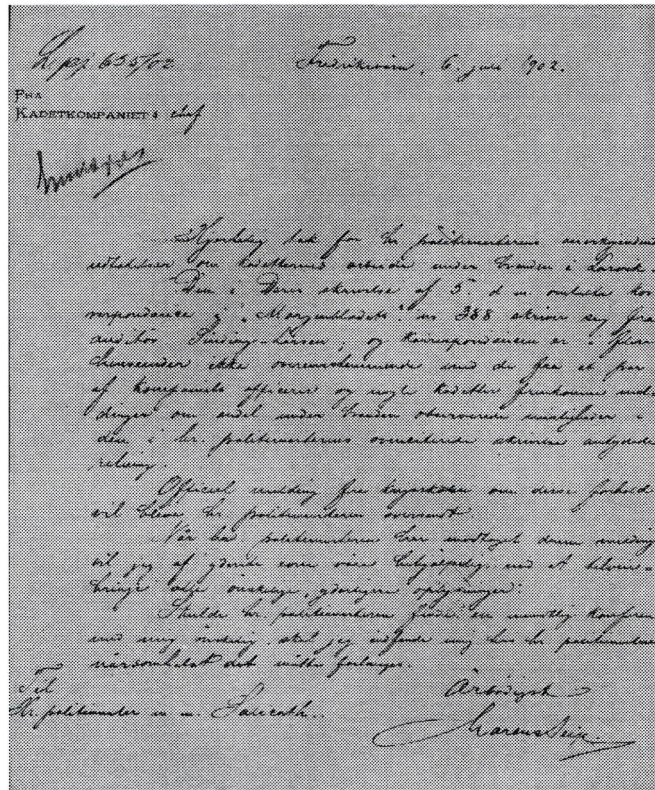 L pj 655/02 Fredriksvern, 6 juli 1902.
FRA
KADETKOMPANIETS chef
Hjertelig tak for hr. politimesterens anerkjendende
udtalelser om kadetternes arbeide under branden i Larvik.
Den i Deres skrivelse af 5 d. m. omtalte kor-
respondance i "Morgenbladets" nr 388 skriver sig fra
auditør Sinding-Larsen, og korrespondancen er i flere
henseender ikke overensstemmende med de fra et par
af kompaniets officerer og nogle kadetter fremkomne mel-
dinger om endel under branden observerede
den i hr. politimesterens skrivelse antydede
retning.
Officiel melding fra om disse forhold
vil blive hr. politimesteren oversendt.
Når hr. politimesteren har modtaget denne melding
vil jeg af yderste evne være behjælpelig med at tilveie-
bringe alle ønskelige, yderligere oplysninger.
Skulde hr. politimesteren finde en mundtlig konferense
med mig nødig skal jeg indfinde mig hos hr. politimesteren
nårsomhelst det måtte forlanges.
Til Ærbødigst
Hr. politimester m. m.